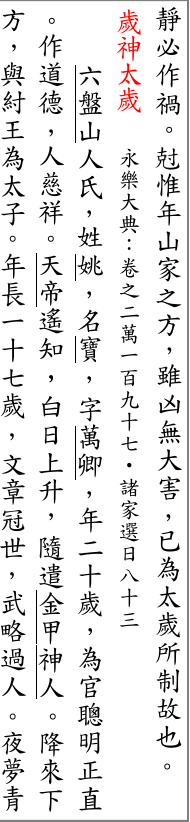 靜必作禍。尅惟年山家之方，雖凶無大害，已為太歲所制故也。
歲神太歲 永樂大典：卷之二萬一百九十七・諸家選日八十三
六盤山人氏，姓姚，名寶，字萬卿，年二十歲，為官聰明正直
。作道德，人慈祥。天帝遙知，白日上升，隨遣金甲神人。降來下
方，與紂王為太子。年長一十七歲，文章冠世，武略過人。夜夢青